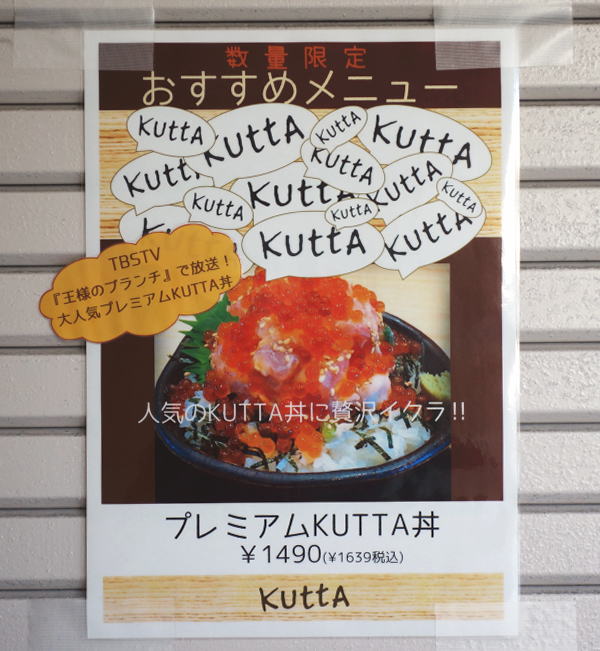 数量限定
おすすめメニュー
KUttA
KUttA
KUttA
KUttA
KUttA
KUttA
KUttA
KUttA
KUttA
KUttA
KUttA
KUttA
KUttA
TBSTV
『王様のブランチ』で放送！
大人気プレミアムKUTTA丼
人気のKUTTA丼に贅沢イクラ!!
プレミアムKUTTA丼
￥1490(¥1639税込)
KUttA